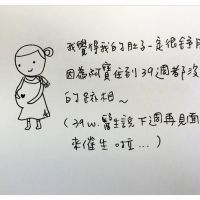 我覺得我的肚子一定很舒服
因為阿寶住到39週都沒
的跡相~
(39w.醫生說下週再見面
來催生啦...)